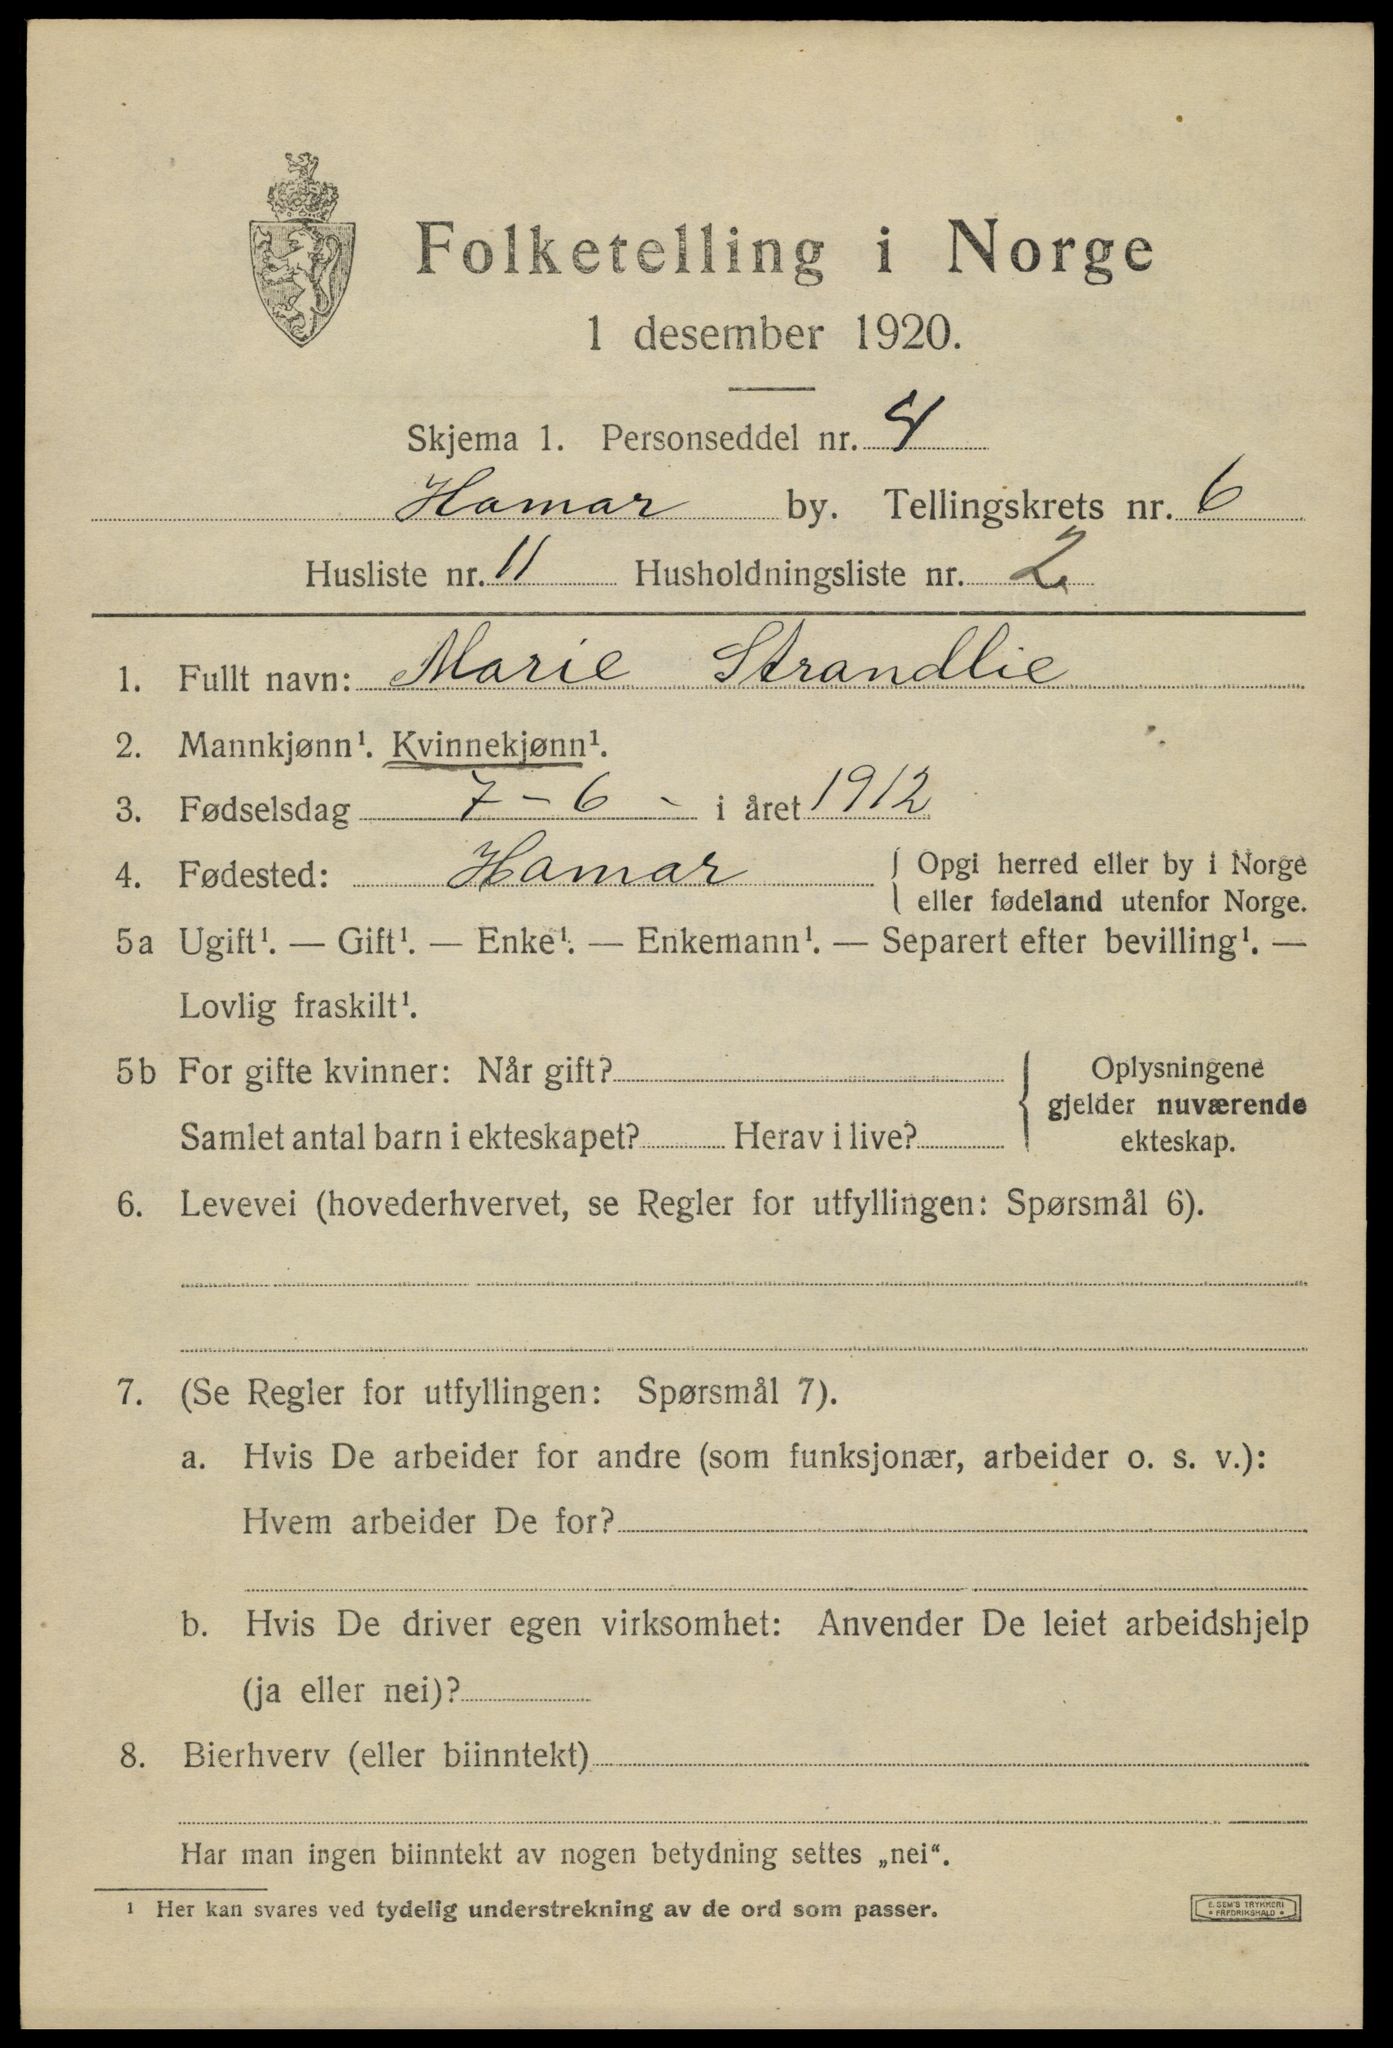 Folketelling i Norge
1 desember 1920.
Skjema 1. Personseddel nr.
Hamar by. Tellingskrets nr. 6
Husliste nr. 11 Husholdningsliste nr. 2
1. Fullt navn: Marie Strandlie
2. Mannkjønn¹. Kvinnekjønn¹.
3. Fødselsdag 7 - 6 - i året 1912
4. Fødested: Hamar { Opgi herred eller by i Norge
eller fødeland utenfor Norge.
5a Ugift¹. — Gift¹. — Enke¹. — Enkemann¹. — Separert efter bevilling¹. —
Lovlig fraskilt¹.
5b For gifte kvinner: Når gift? { Oplysningene
gjelder nuværende
Samlet antal barn i ekteskapet? Herav i live? ekteskap.
6. Levevei (hovederhvervet, se Regler for utfyllingen: Spørsmål 6).
7. (Se Regler for utfyllingen: Spørsmål 7).
a. Hvis De arbeider for andre (som funksjonær, arbeider o. s. v.):
Hvem arbeider De for?
b. Hvis De driver egen virksomhet: Anvender De leiet arbeidshjelp
(ja eller nei)?
8. Bierhverv (eller biinntekt)
Har man ingen biinntekt av nogen betydning settes „nei“.
¹ Her kan svares ved tydelig understrekning av de ord som passer.
E. SEM'S TRYKKERI
* FREDRIKSHALD *